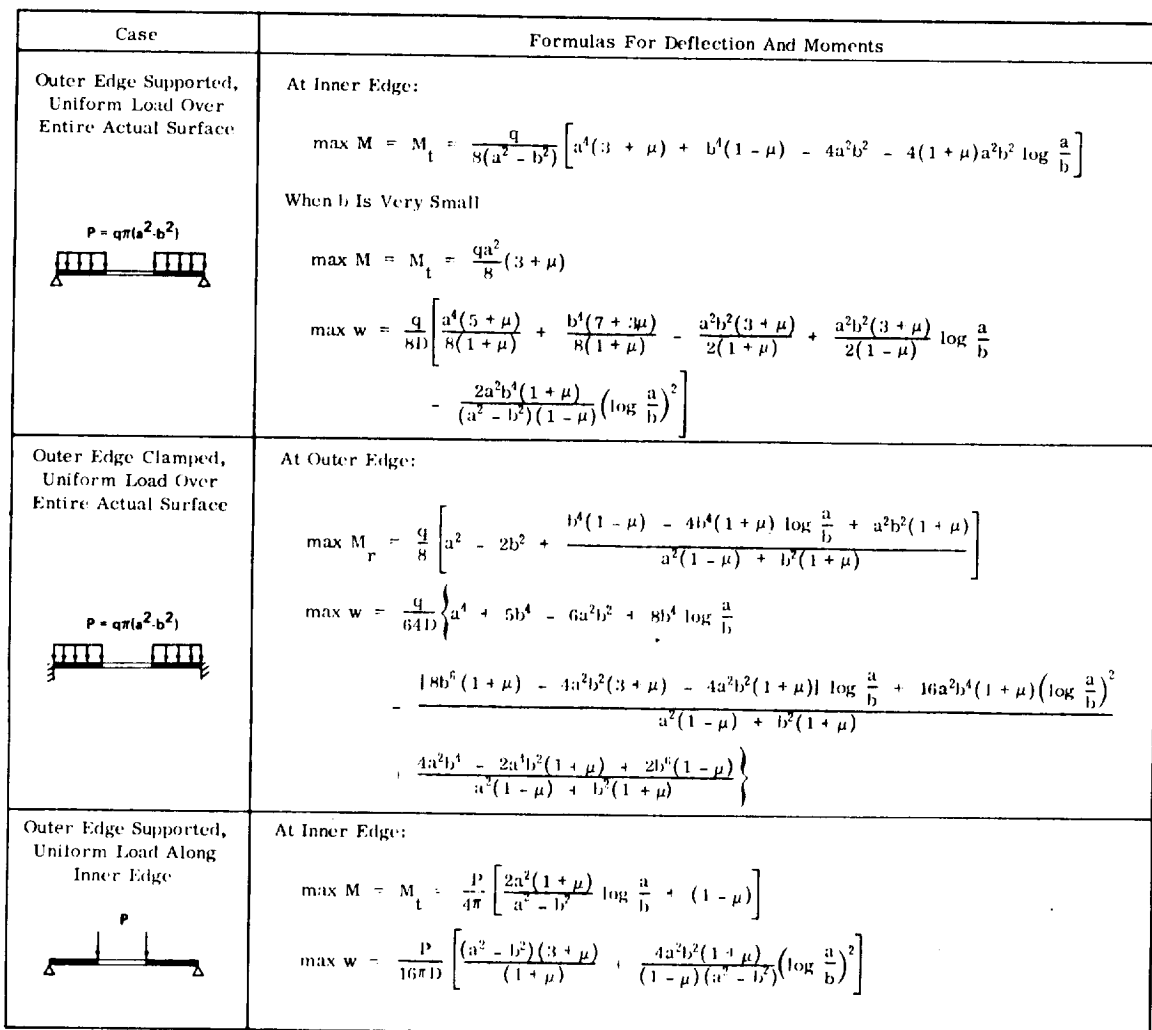 Case
Formulas For Deflection And Moments
Outer Edge Supported,
Uniform Load Over
Entire Actual Surface
P = qπ(a²-b²)
At Inner Edge:
max M = M_t = q/(8(a² - b²)) [a⁴(3 + μ) + b⁴(1 - μ) - 4a²b² - 4(1 + μ)a²b² log a/b]
When b Is Very Small
max M = M_t = qa²/8 (3 + μ)
max w = q/8D [a⁴(5 + μ)/8(1 + μ) + b⁴(7 + 3μ)/8(1 + μ) - a²b²(3 + μ)/2(1 + μ) + a²b²(3 + μ)/2(1 - μ) log a/b
- 2a²b⁴(1 + μ)/((a² - b²)(1 - μ)) (log a/b)²]
Outer Edge Clamped,
Uniform Load Over
Entire Actual Surface
P = qπ(a²-b²)
At Outer Edge:
max M_r = q/8 [a² - 2b² + (b⁴(1 - μ) - 4b⁴(1 + μ) log a/b + a²b²(1 + μ))/(a²(1 - μ) + b²(1 + μ))]
max w = q/64D {a⁴ + 5b⁴ - 6a²b² + 8b⁴ log a/b
- ([8b⁶(1 + μ) - 4a²b²(3 + μ) - 4a²b²(1 + μ)] log a/b + 16a²b⁴(1 + μ)(log a/b)²)/(a²(1 - μ) + b²(1 + μ))
+ (4a²b⁴ - 2a⁴b²(1 + μ) + 2b⁶(1 - μ))/(a²(1 - μ) + b²(1 + μ))}
Outer Edge Supported,
Uniform Load Along
Inner Edge
P
At Inner Edge:
max M = M_t = P/4π [2a²(1 + μ)/(a² - b²) log a/b + (1 - μ)]
max w = P/16πD [(a² - b²)(3 + μ)/(1 + μ) + 4a²b²(1 + μ)/((1 - μ)(a² - b²)) (log a/b)²]